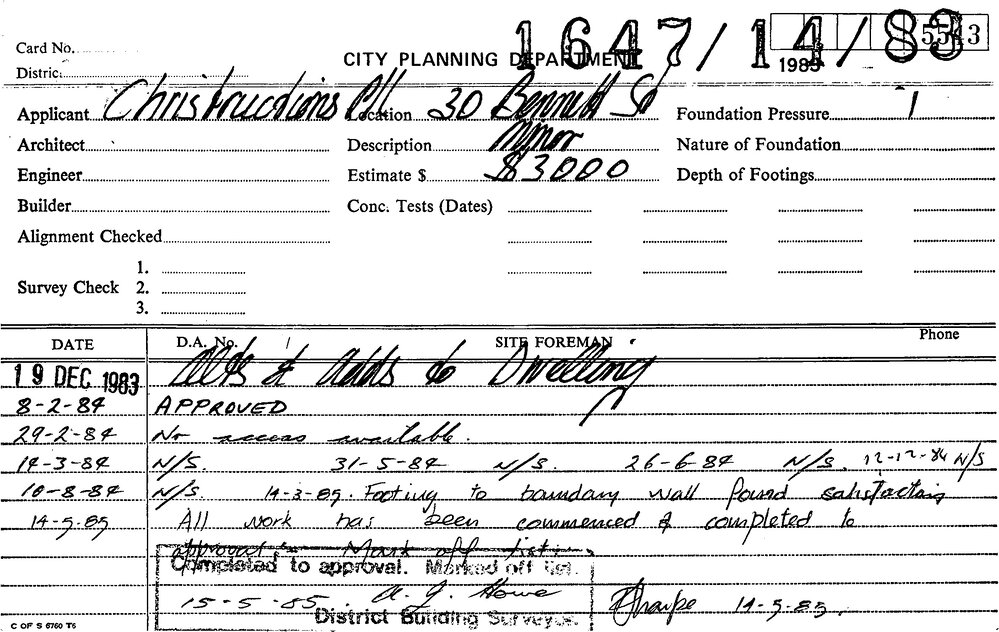 1647/14/83
5513
Card No.
CITY PLANNING DEPARTMENT
1983
District
Applicant Christructions P/L Location 30 Bennett St Foundation Pressure
Architect Description Minor Nature of Foundation
Engineer Estimate $ $3000 Depth of Footings
Builder Conc. Tests (Dates)
Alignment Checked
1.
Survey Check 2.
3.
DATE D.A. No. SITE FOREMAN Phone
19 DEC 1983 Alts & Adds to Dwelling
8-2-84 APPROVED
29-2-84 No access available.
14-3-84 N/S. 31-5-84 N/S. 26-6-84 N/S. 12-12-84 N/S
10-8-84 N/S. 14-3-85. Footing to boundary wall found satisfactory
14-5-85 All work has been commenced & completed to
approval. Mark off list.
Completed to approval. Marked off list.
15-5-85. A. J. Howe
District Building Surveyor.
Tharpe 14-5-85.
C OF S 6760 T6